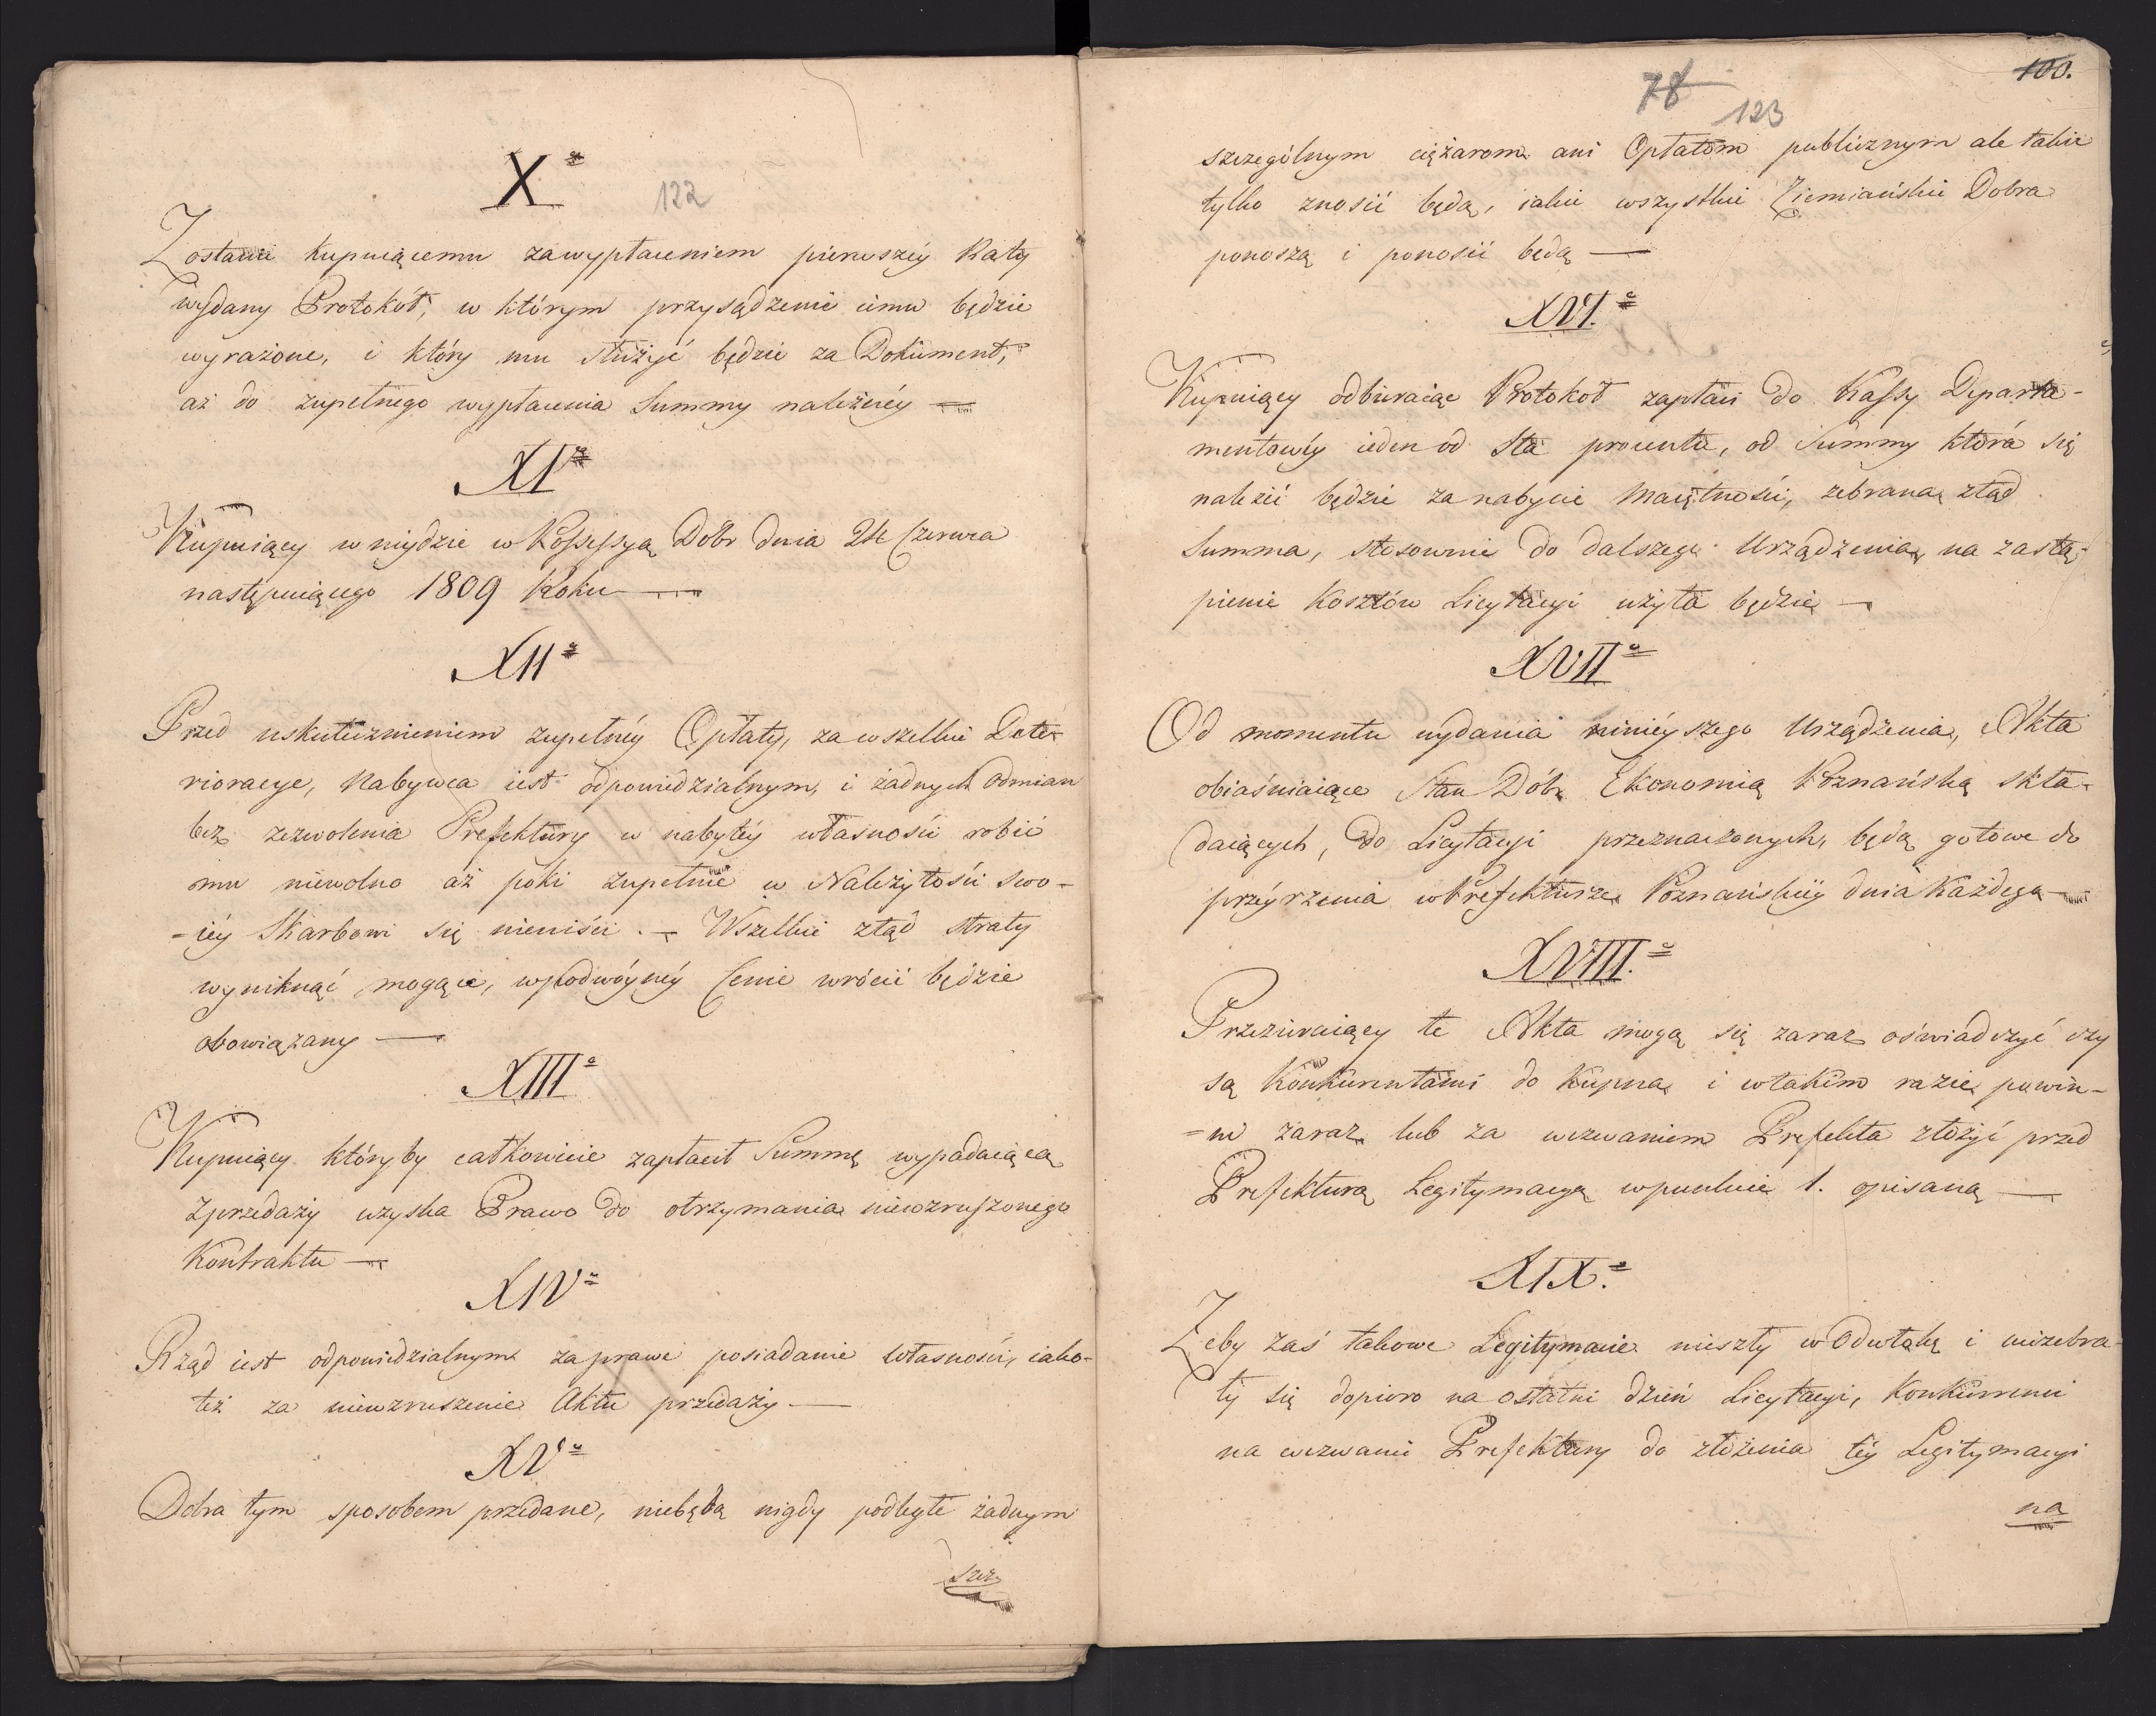 X
122
Zostanie kupuiącemu zawypłaceniem pierwszéy Raty
wydany Protokół, w którym przysądzenie iému będzie
wyrażone, i który mu służyć będzie za Dokument,
aż do zupełnego wypłacenia Summy należnéy —
XI
Kupuiący wniydzie w Possessyą Dóbr dnia 24 Czerwca
następuiącego 1809 Roku —
XII
Przed uskutecznieniem zupełnéy Opłaty, za wszelkie Dete-
rioracye, Nabywca iest odpowiedzialnym, i żadnych Odmian
bez zezwolenia Prefektury w nabytéy własności robić
mu niewolno aż póki zupełnie w Należytości swo-
=iéy Skarbowi się nieuiści. — Wszelkie ztąd straty
wyniknąć mogące, wpodwóynéy Cenie wrócić będzie
obowiązany —
XIII
Kupuiący któryby całkowicie zapłacił Summę wypadaiącą
Zprzedaży uzyska Prawo do otrzymania niewzruszonego
Kontraktu —
XIV
Rząd iest odpowiedzialnym za prawe posiadanie własności, iako-
też za niewzruszenie Aktu przedaży —
XV
Dobra tym sposobem przedane, niebędą nigdy podległe żadnym
szcz
78
100.
123
szczególnym ciężarom ani Opłatom publicznym ale takie
tylko znosić będą, iakie wszystkie Ziemiańskie Dobra
ponoszą i ponosić będą —
XVI.
Kupuiący odbieraiąc Protokół zapłaci do Kassy Departa-
mentowéy ieden od Sta procentu, od Summy która się
należeć będzie za nabycie Maiętności, zebrana ztąd
Summa, stosownie do dalszego Urządzenia, na zastą-
pienie Kosztów Licytacyi użyta będzie —
XVII
Od momentu wydania ninieyszego Urządzenia, Akta
obiaśniaiące Stan Dóbr Ekonomią Poznańską skła-
daiących, do Licytacyi przeznaczonych, będą gotowe do
przéyrzenia wPrefekturze Poznańskiéy dnia Każdego —
XVIII.
Przezieraiący te Akta mogą się zaraz oświadczyć czy
są Konkurentami do kupna i wtakim razie powin-
=ni zaraz lub za wezwaniem Prefekta złożyć przed
Prefekturą Legitymacyą wpunkcie 1. opisaną —
XIX.
Żeby zaś takowe Legitymacie nieszły wOdwłokę i niezebra-
ły się dopiero na ostatni dzień Licytacyi, Konkurenci
na wezwanie Prefektury do złożenia téy Legitymacyi
na